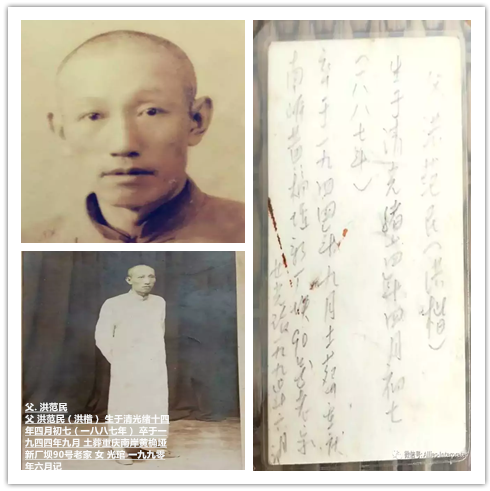 父.洪范民
父 洪范民(洪楷) 生于清光绪十四
年四月初七(一八八七年) 卒于一
九四四年九月 土葬重庆南岸黄桷垭
新厂坝90号老家 女 光
年六月记
父 洪范民(洪楷)
生于清光绪十四年四月初七
(一八八七年)
卒于一九四四年九月土葬重庆
南岸黄桷垭新厂坝90号老家
女光